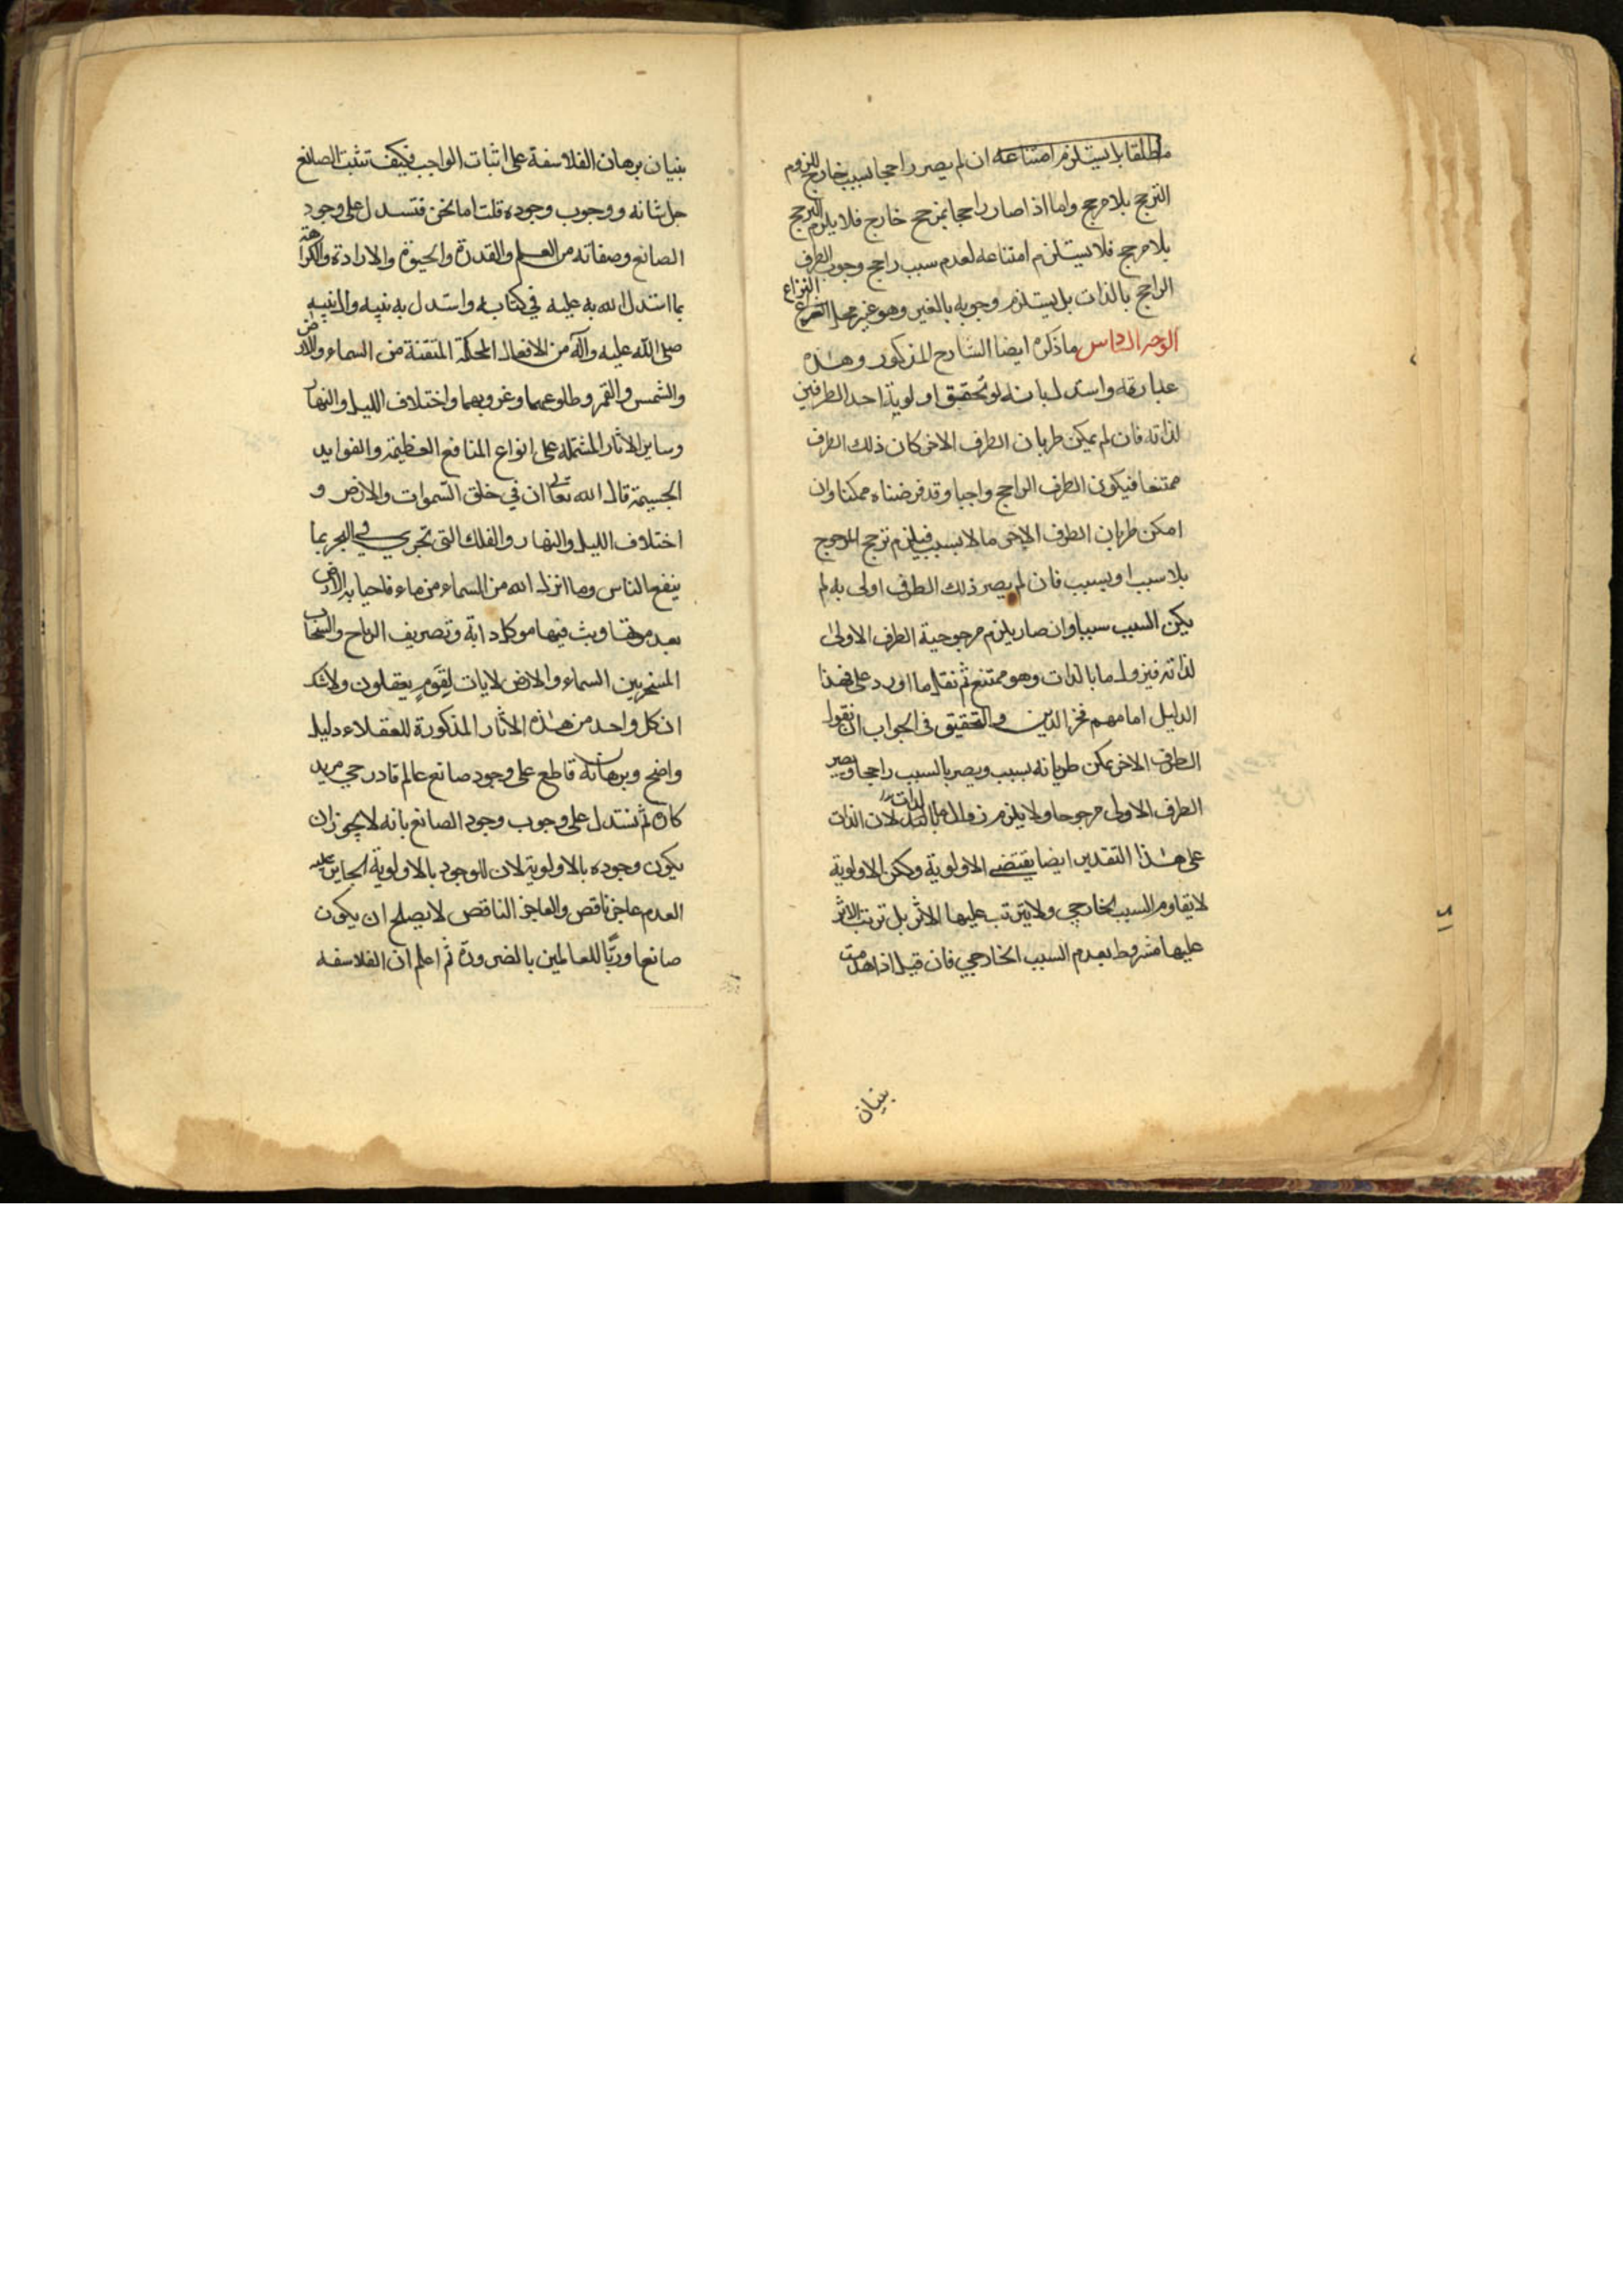 مطلقا بل يستلزم امتناعه ان لم يصر راجحا بسبب خارج للزوم
الترجح بلا مرجح واما اذا صار راجحا بمرجح خارج فلا يلزم الترجح
بلا مرجح فلا يستلزم امتناعه لعدم سبب راجح وجوب الطرف
الراجح بالذات بل يستلزم وجوبه بالغير وهو غير محل النزاع
الوجه السادس ما ذكره ايضا الشارح المذكور وهذه
عبارته واستدل بانه لو تحقق اولوية احد الطرفين
لذاته فان لم يمكن طريان الطرف الاخر كان ذلك الطرف
ممتنعا فيكون الطرف الراجح واجبا وقد فرضناه ممكنا وان
امكن طريان الطرف الاخر اما لا بسبب فيلزم ترجح المرجوح
بلا سبب او بسبب فان لم يصر ذلك الطرف اولى به لم
يكن السبب سببا وان صار يلزم مرجوحية الطرف الاولى
لذاته فيزول ما بالذات وهو ممتنع ثم نقل ما اورد على هذا
الدليل امامهم فخر الدين والتحقيق في الجواب ان نقول
الطرف الاخر يمكن طريانه بسبب ويصير بالسبب راجحا ويصير
الطرف الاولى مرجوحا ولا يلزم زوال ما بالذات لان الذات
على هذا التقدير ايضا يقتضي الاولوية ولكن الاولوية
لا يقاوم السبب الخارجي ولا يترتب عليها الاثر بل ترتب الاثر
عليها مشروط بعدم السبب الخارجي فان قيل اذا هدمت
بنيان
بنيان برهان الفلاسفة على اثبات الواجب فكيف تثبت الصانع
جل شانه ووجوب وجوده قلت اما نحن فنستدل على وجود
الصانع وصفاته من العلم والقدرة والحيوة والارادة والكراهة
بما استدل الله به عليه في كتابه واستدل به نبيه وال نبيه
صلى الله عليه وآله من الافعال المحكمة المتقنة من السماء والارض
والشمس والقمر وطلوعهما وغروبهما واختلاف الليل والنهار
وساير الاثار المشتملة على انواع المنافع العظيمة والفوايد
الجسيمة قال الله تعالى ان في خلق السموات والارض و
اختلاف الليل والنهار والفلك التي تجري في البحر بما
ينفع الناس وما انزل الله من السماء من ماء فاحيا به الارض
بعد موتها وبث فيها من كل دابة وتصريف الرياح والسحاب
المسخر بين السماء والارض لايات لقوم يعقلون ولا شك
ان كل واحد من هذه الاثار المذكورة للعقلاء دليل
واضح وبرهان قاطع على وجود صانع عالم قادر حي مريد
كاره ثم نستدل على وجوب وجود الصانع بانه لا يجوز ان
يكون وجوده بالاولوية لان الموجود بالاولوية الجايز عليه
العدم عاجز ناقص والعاجز الناقص لا يصلح ان يكون
صانعا وربا للعالمين بالضرورة ثم اعلم ان الفلاسفة